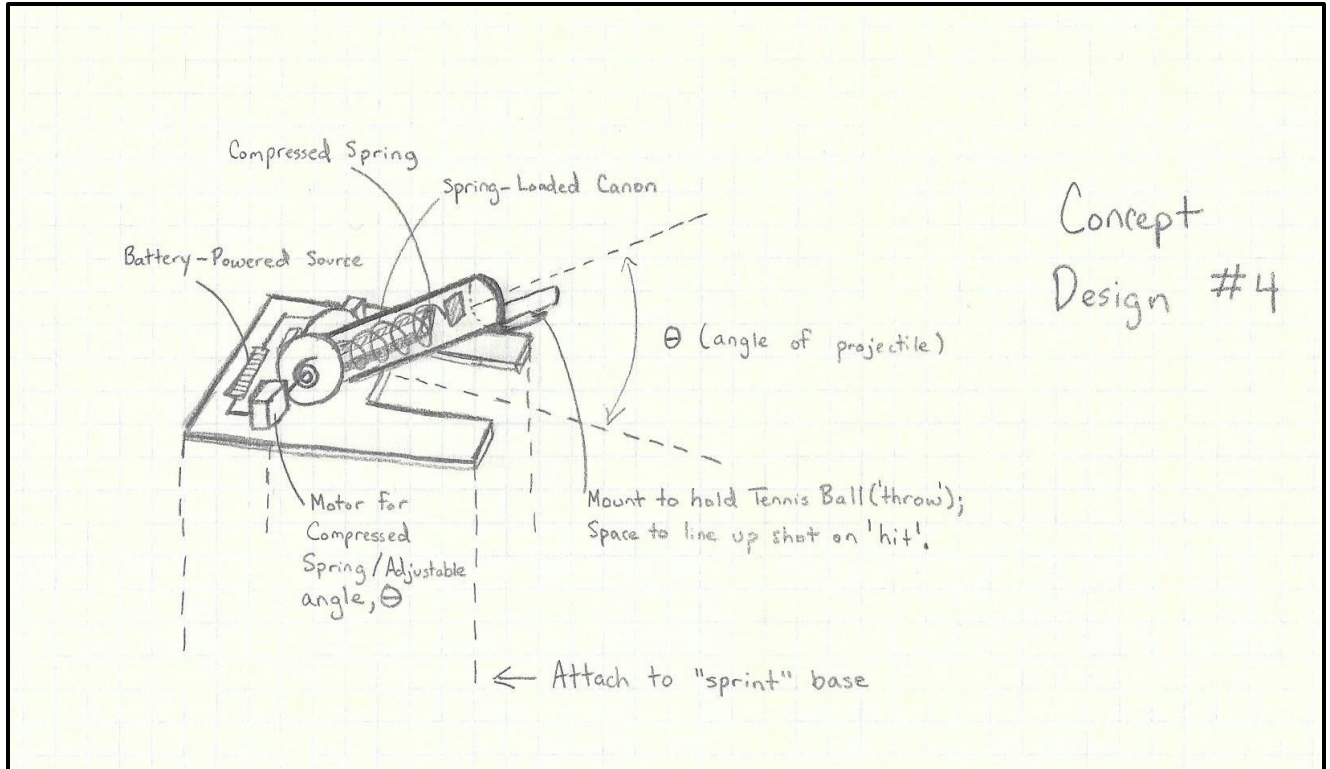 Concept
Design #4
Compressed Spring
Spring-Loaded Canon
Battery-Powered Source
Θ (angle of projectile)
Motor for
Compressed
Spring/Adjustable
angle, Θ
Mount to hold Tennis Ball ('throw');
Space to line up shot on 'hit'.
← Attach to "sprint" base